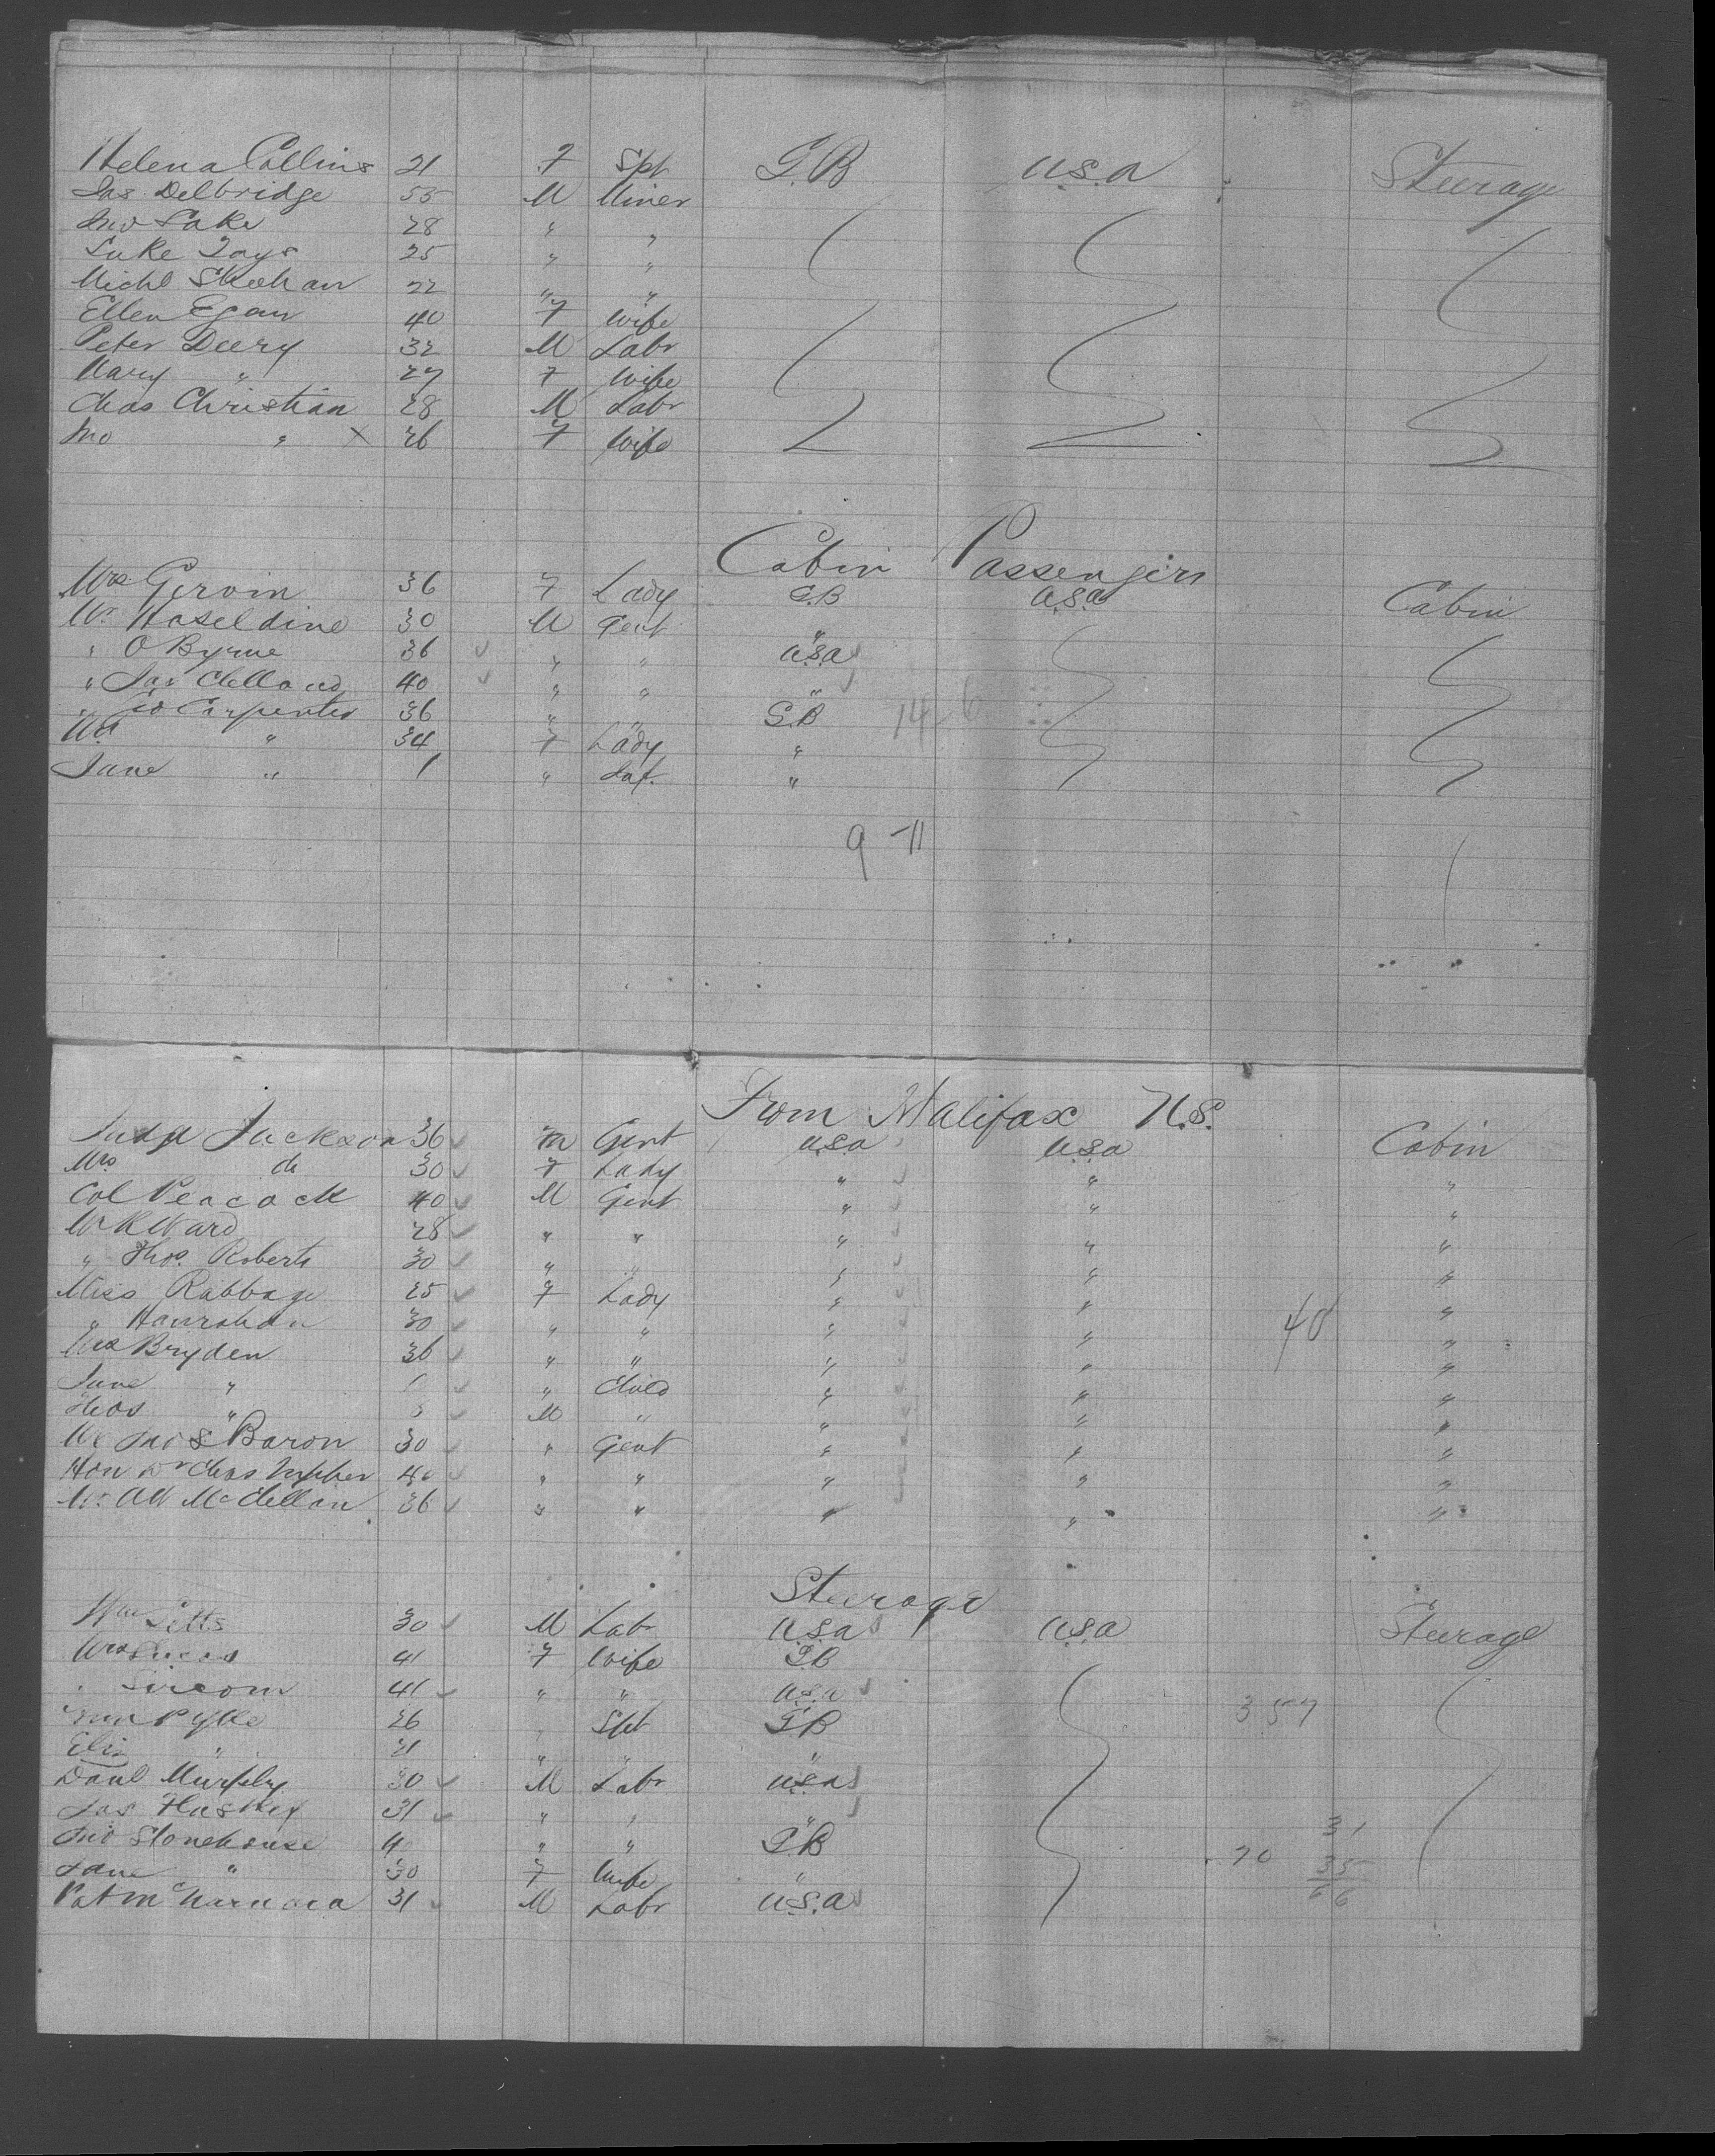 Helena Collins 21 F Spt G.B U.S.A Steerage
Jas Delbridge 55 M Miner
Jno Lake 28 " "
Luke Jays 25 " "
Michl Sheehan 22 " "
Ellen Egan 40 F Wife
Peter Deery 32 M Labr
Mary " 27 F Wife
Chas Christian 28 M Labr
Jno " X 26 F Wife
Cabin Passengers
Mrs Gervin 36 F Lady G.B U.S.A Cabin
Mr Haseldine 30 M Gent "
" O Byrne 36 " " U.S.A
" Jas Clelland 40 " " "
" Carpenter 36 " " G.B 14 6
Mrs " 34 F Lady "
Jane " 1 " Inf. "
9 - 11
From Halifax N.S.
Judge Jackson 36 M Gent U.S.A U.S.A Cabin
Mrs do 30 F Lady " " "
Col Peacock 40 M Gent " " "
Mr R Ward 28 " " " " "
" Thos. Roberts 30 " " " " "
Miss Rabbage 25 F Lady " " "
" Hanrahan 30 " " " " " 40
Mrs Bryden 36 " " " " "
Jane " 1 " Child " " "
Thos " 3 M " " " "
Mr Jno S Baron 30 " Gent " " "
Hon Dr Chas Tupper 40 " " " " "
Mr AW McClellan 36 " " " " "
Steerage
Wm Letts 30 M Labr U.S.A U.S.A Steerage
Mrs Lucas 41 F Wife G.B
" 41 " " U.S.A
Pyke 26 " Spt G.B 357
Eliz " 21 " " "
Danl Murphy 30 M Labr U.S.A
Jas Haskey 31 " " "
Jno Stonehouse 41 " " G.B 31
Jane " 30 F Wife " 70 35
Pat McNamara 31 M Labr U.S.A 66